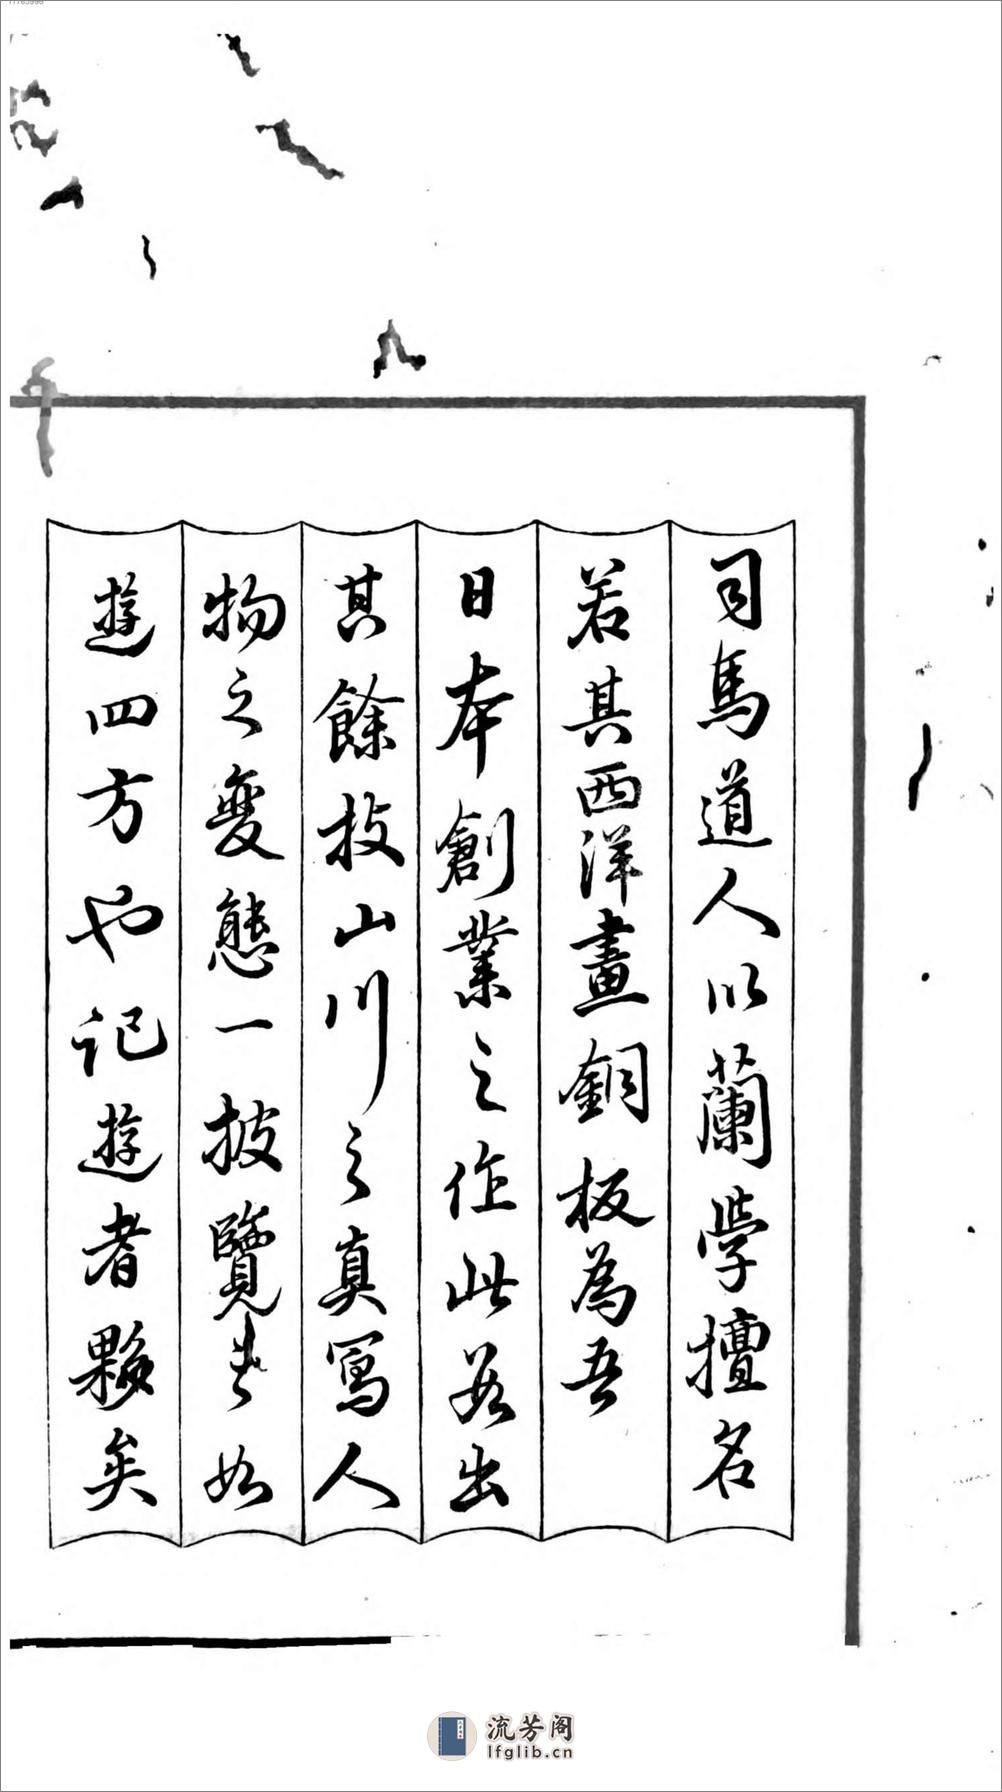 司馬道人以蘭學擅名
若其西洋畫銅板為吾
日本創業之作此首出
其餘技山川之真寫人
物之變態一披覽者如
遊四方也記遊者夥矣
流芳閣
lfglib.cn